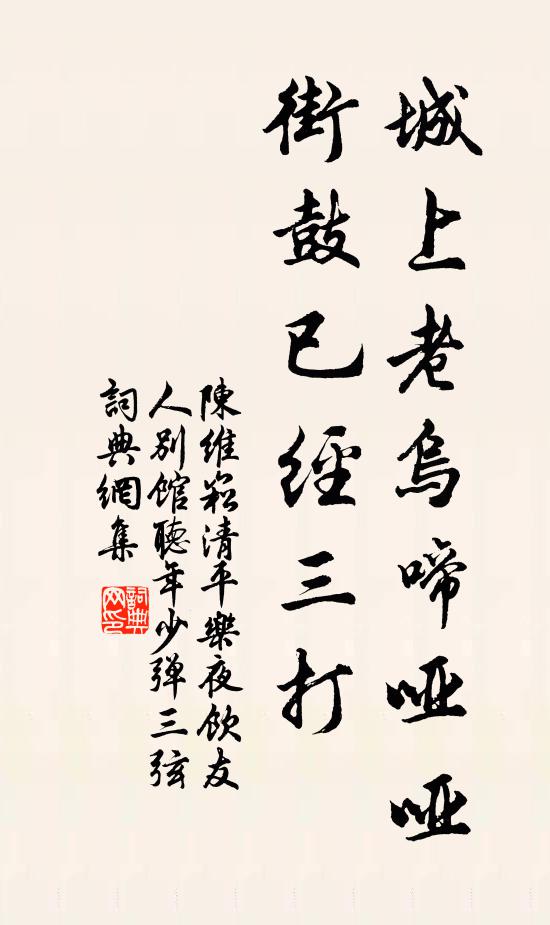 城上老烏啼啞啞
街鼓已經三打
陳維崧清平樂夜飲友
人別館聽年少彈三弦
詞典網集
詞典
网印